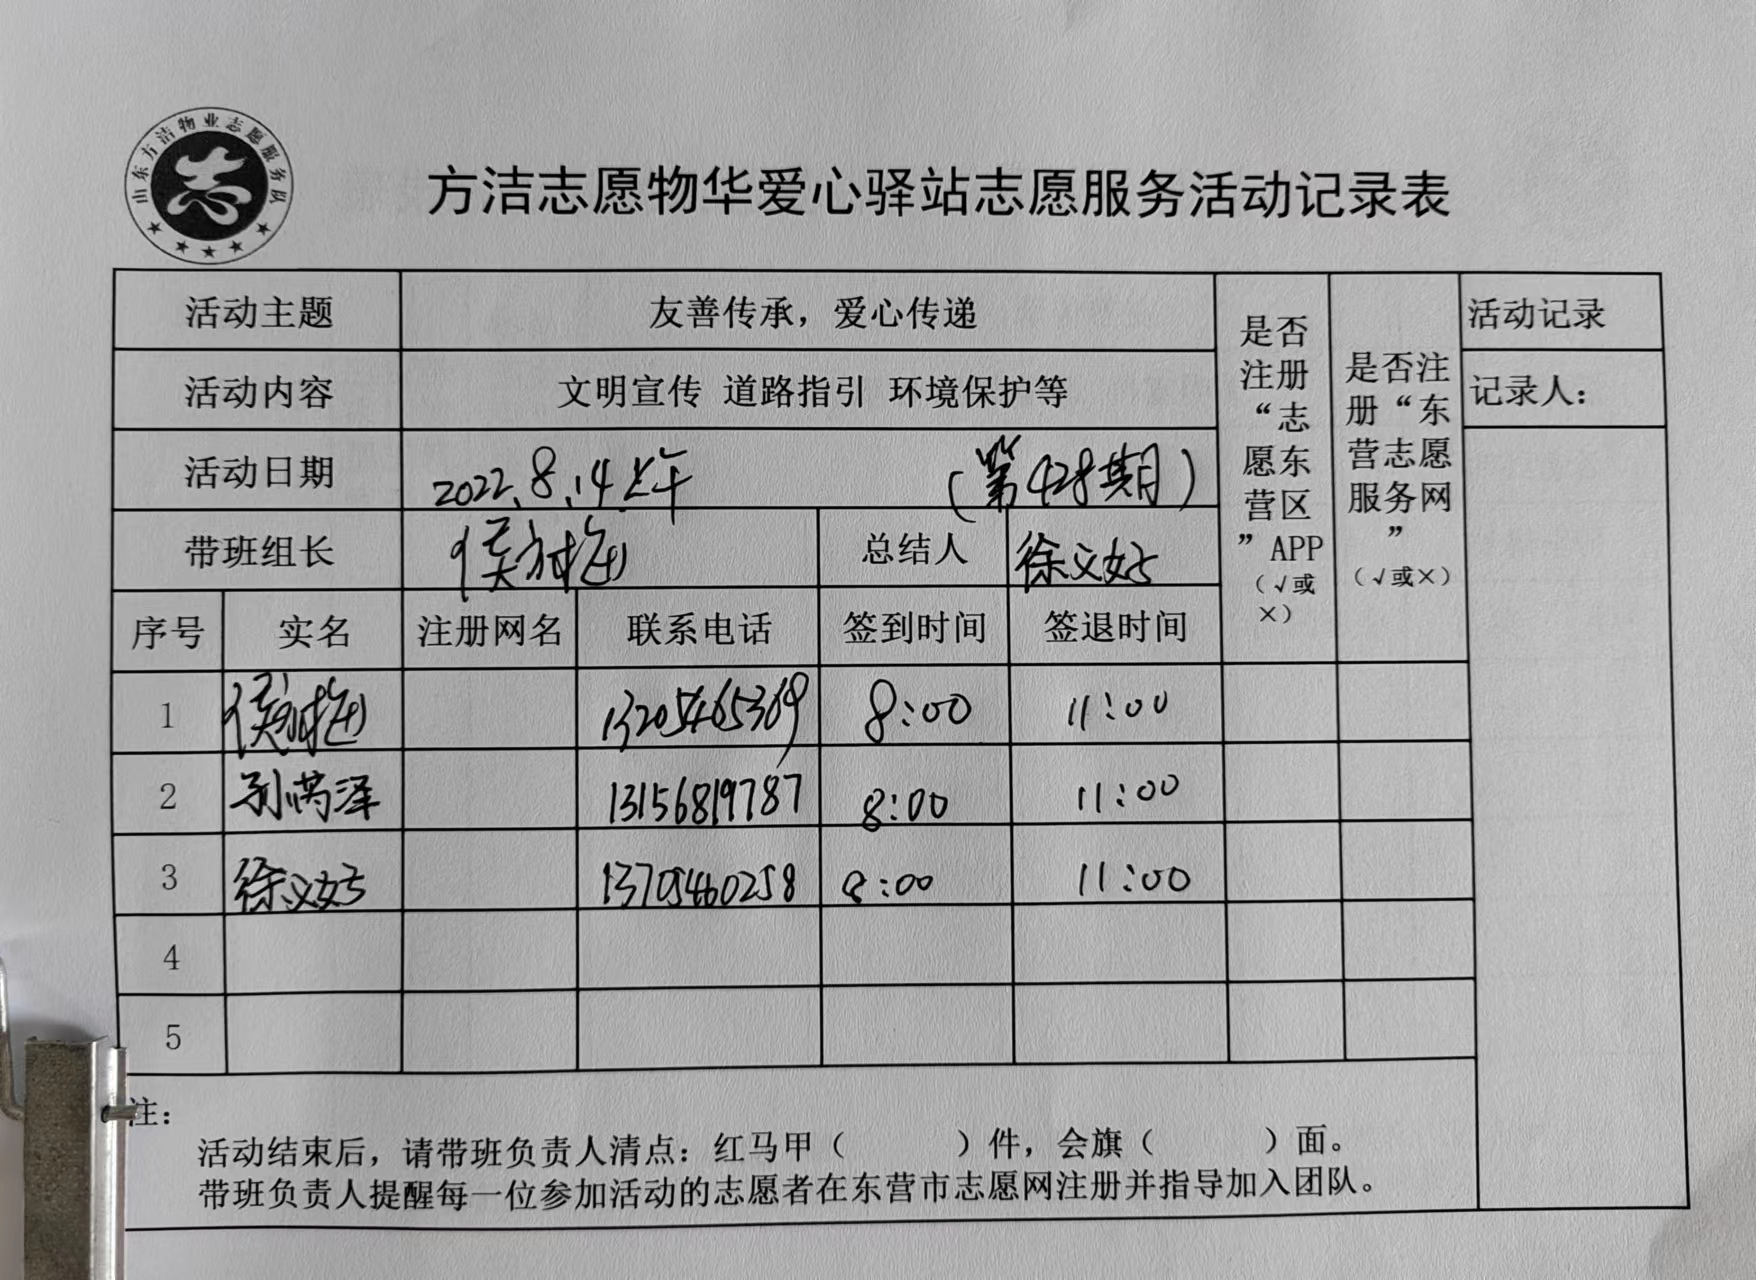 山东方洁物业志愿服务队
方洁志愿物华爱心驿站志愿服务活动记录表
活动主题 友善传承，爱心传递
活动内容 文明宣传 道路指引 环境保护等
活动日期 2022.8.14上午 （第428期）
带班组长 侯树梅 总结人 徐义好
是否
注册
“志
愿东
营区
”APP
（√或
×）
是否注
册“东
营志愿
服务网
”
（√或×）
活动记录
记录人：
序号 实名 注册网名 联系电话 签到时间 签退时间
1 侯树梅 13205465369 8:00 11:00
2 孙泽 13156819787 8:00 11:00
3 徐义好 13705460258 8:00 11:00
4
5
注：
活动结束后，请带班负责人清点：红马甲（ ）件，会旗（ ）面。
带班负责人提醒每一位参加活动的志愿者在东营市志愿网注册并指导加入团队。